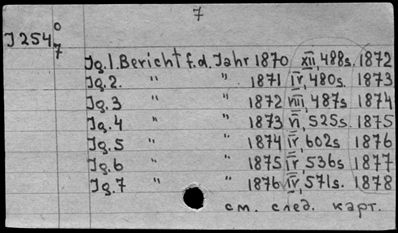 7
J 254 0/7
Jg.1. Bericht f.d. Jahr 1870 XII, 488s. 1872
Jg.2. " " 1871 IV, 480s. 1873
Jg.3 " " 1872 VIII, 487s 1874
Jg.4 " " 1873 VI, 525s 1875
Jg.5 " " 1874 IV, 602s 1876
Jg.6 " " 1875 IV, 536s 1877
Jg.7 " " 1876 IV, 571s. 1878
см. след. карт.